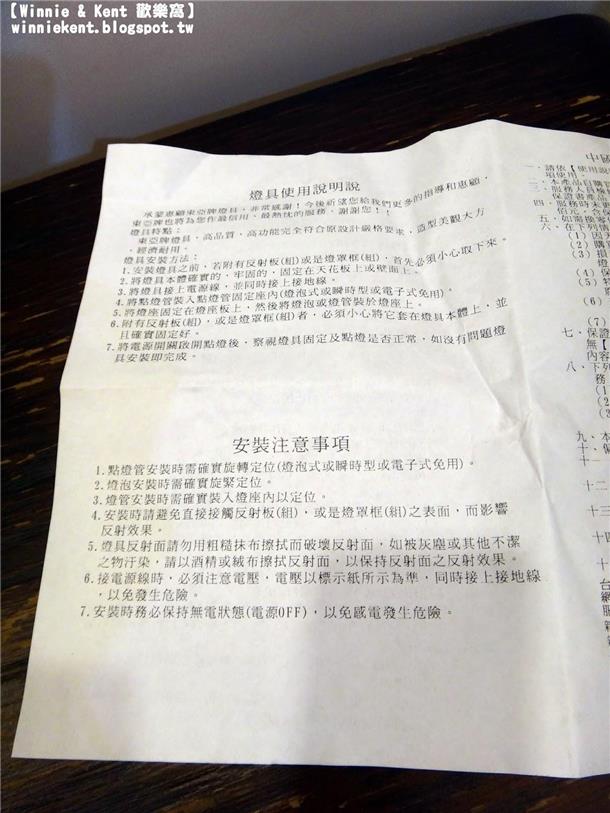 【Winnie & Kent 歡樂窩】
winniekent.blogspot.tw
燈具使用說明說
承蒙惠顧東亞牌燈具，非常感謝！今後祈望您給我們更多的指導和惠顧，
東亞牌也將為您作最信用、最熱忱的服務，謝謝您！！
燈具特點：
東亞牌燈具，高品質，高功能完全符合原設計嚴格要求，造型美觀大方
，經濟耐用。
燈具安裝方法：
1.安裝燈具之前，若附有反射板(組)或是燈罩框(組)，首先必須小心取下來。
2.將燈具本體確實的，牢固的，固定在天花板上或壁面上。
3.將燈具接上電源線，並同時接上接地線。
4.將點燈管裝入點燈管固定座內(燈泡式或瞬時型或電子式免用)。
5.將燈座固定在燈座板上，然後將燈泡或燈管裝於燈座上。
6.附有反射板(組)，或是燈罩框(組)者，必須小心將它套在燈具本體上，並
且確實固定好。
7.將電源開關啟開點燈後，察視燈具固定及點燈是否正常，如沒有問題燈
具安裝即完成。
安裝注意事項
1.點燈管安裝時需確實旋轉定位(燈泡式或瞬時型或電子式免用)。
2.燈泡安裝時需確實旋緊定位。
3.燈管安裝時需確實裝入燈座內以定位。
4.安裝時請避免直接接觸反射板(組)，或是燈罩框(組)之表面，而影響
反射效果。
5.燈具反射面請勿用粗糙抹布擦拭而破壞反射面，如被灰塵或其他不潔
之物汙染，請以酒精或絨布擦拭反射面，以保持反射面之反射效果。
6.接電源線時，必須注意電壓，電壓以標示紙所示為準，同時接上接地線
，以免發生危險。
7.安裝時務必保持無電狀態(電源OFF)，以免感電發生危險。
中國
一、請依【使用說
項使用。
二、本產品自購
三、服務人員檢
保證書產品
四、服務時未要
佰元，含
五、如需換零
六、在下列情
(1)因天
(2)購
(3)損
燈
(4)保
(5)特
將
(6)
(7)
七、保證
無【
內容
八、下列
務
(1
(2
(3
九、本
十、偏
十一
十二
十三
十四
十
台
網
服